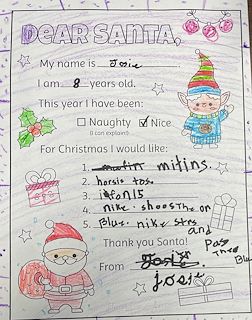 DEAR SANTA,
My name is Josie
I am 8 years old.
This year I have been:
Naughty Nice
(I can explain!)
For Christmas I would like:
1. mitins.
2. horsis
3.
4. nike. shoos The on
5. Blue. nike
and
Thank you Santa!
From Josie
josie